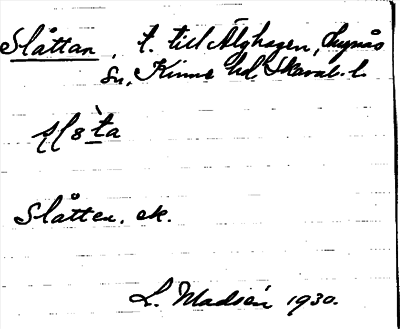 Slåttan, t. till Älghagen, Lugnås
sn, Kinne hd. Skarab. l.
sl8̀ta
Slåtten. ek.
L. Madsén 1930.